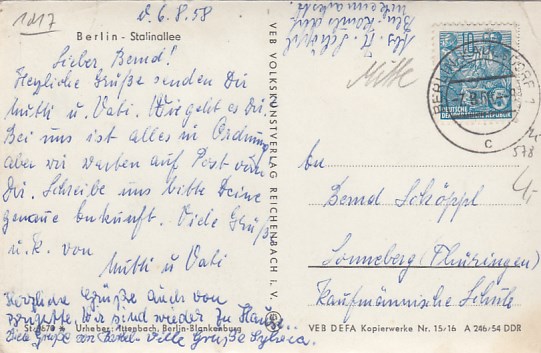 1017
d. 6.8.58
Berlin - Stalinallee
Lieber Bernd!
Herzliche Grüße senden Dir
Mutti u. Vati. Wie geht es Dir.
Bei uns ist alles in Ordnung
aber wir warten auf Post von
Dir. Schreibe uns bitte Deine
genaue Ankunft. Viele Grüße
u. K. von
Mutti u Vati
Herzliche Grüße auch von
Wir sind wieder zu Hause
Viele Grüße von Viele Grüße Sylvia.
St 4670 Urheber: Attenbach, Berlin-Blankenburg
VEB VOLKSKUNSTVERLAG REICHENBACH I. V.
Abs. H. Schöppl
Mitte
10
DEUTSCHE DEMOKRATISCHE REPUBLIK
BERLIN
c
578
An
Bernd Schöppl
Sonneberg (Thüringen)
Kaufmännische Schule
4,-
VEB DEFA Kopierwerke Nr. 15/16 A 246/54 DDR